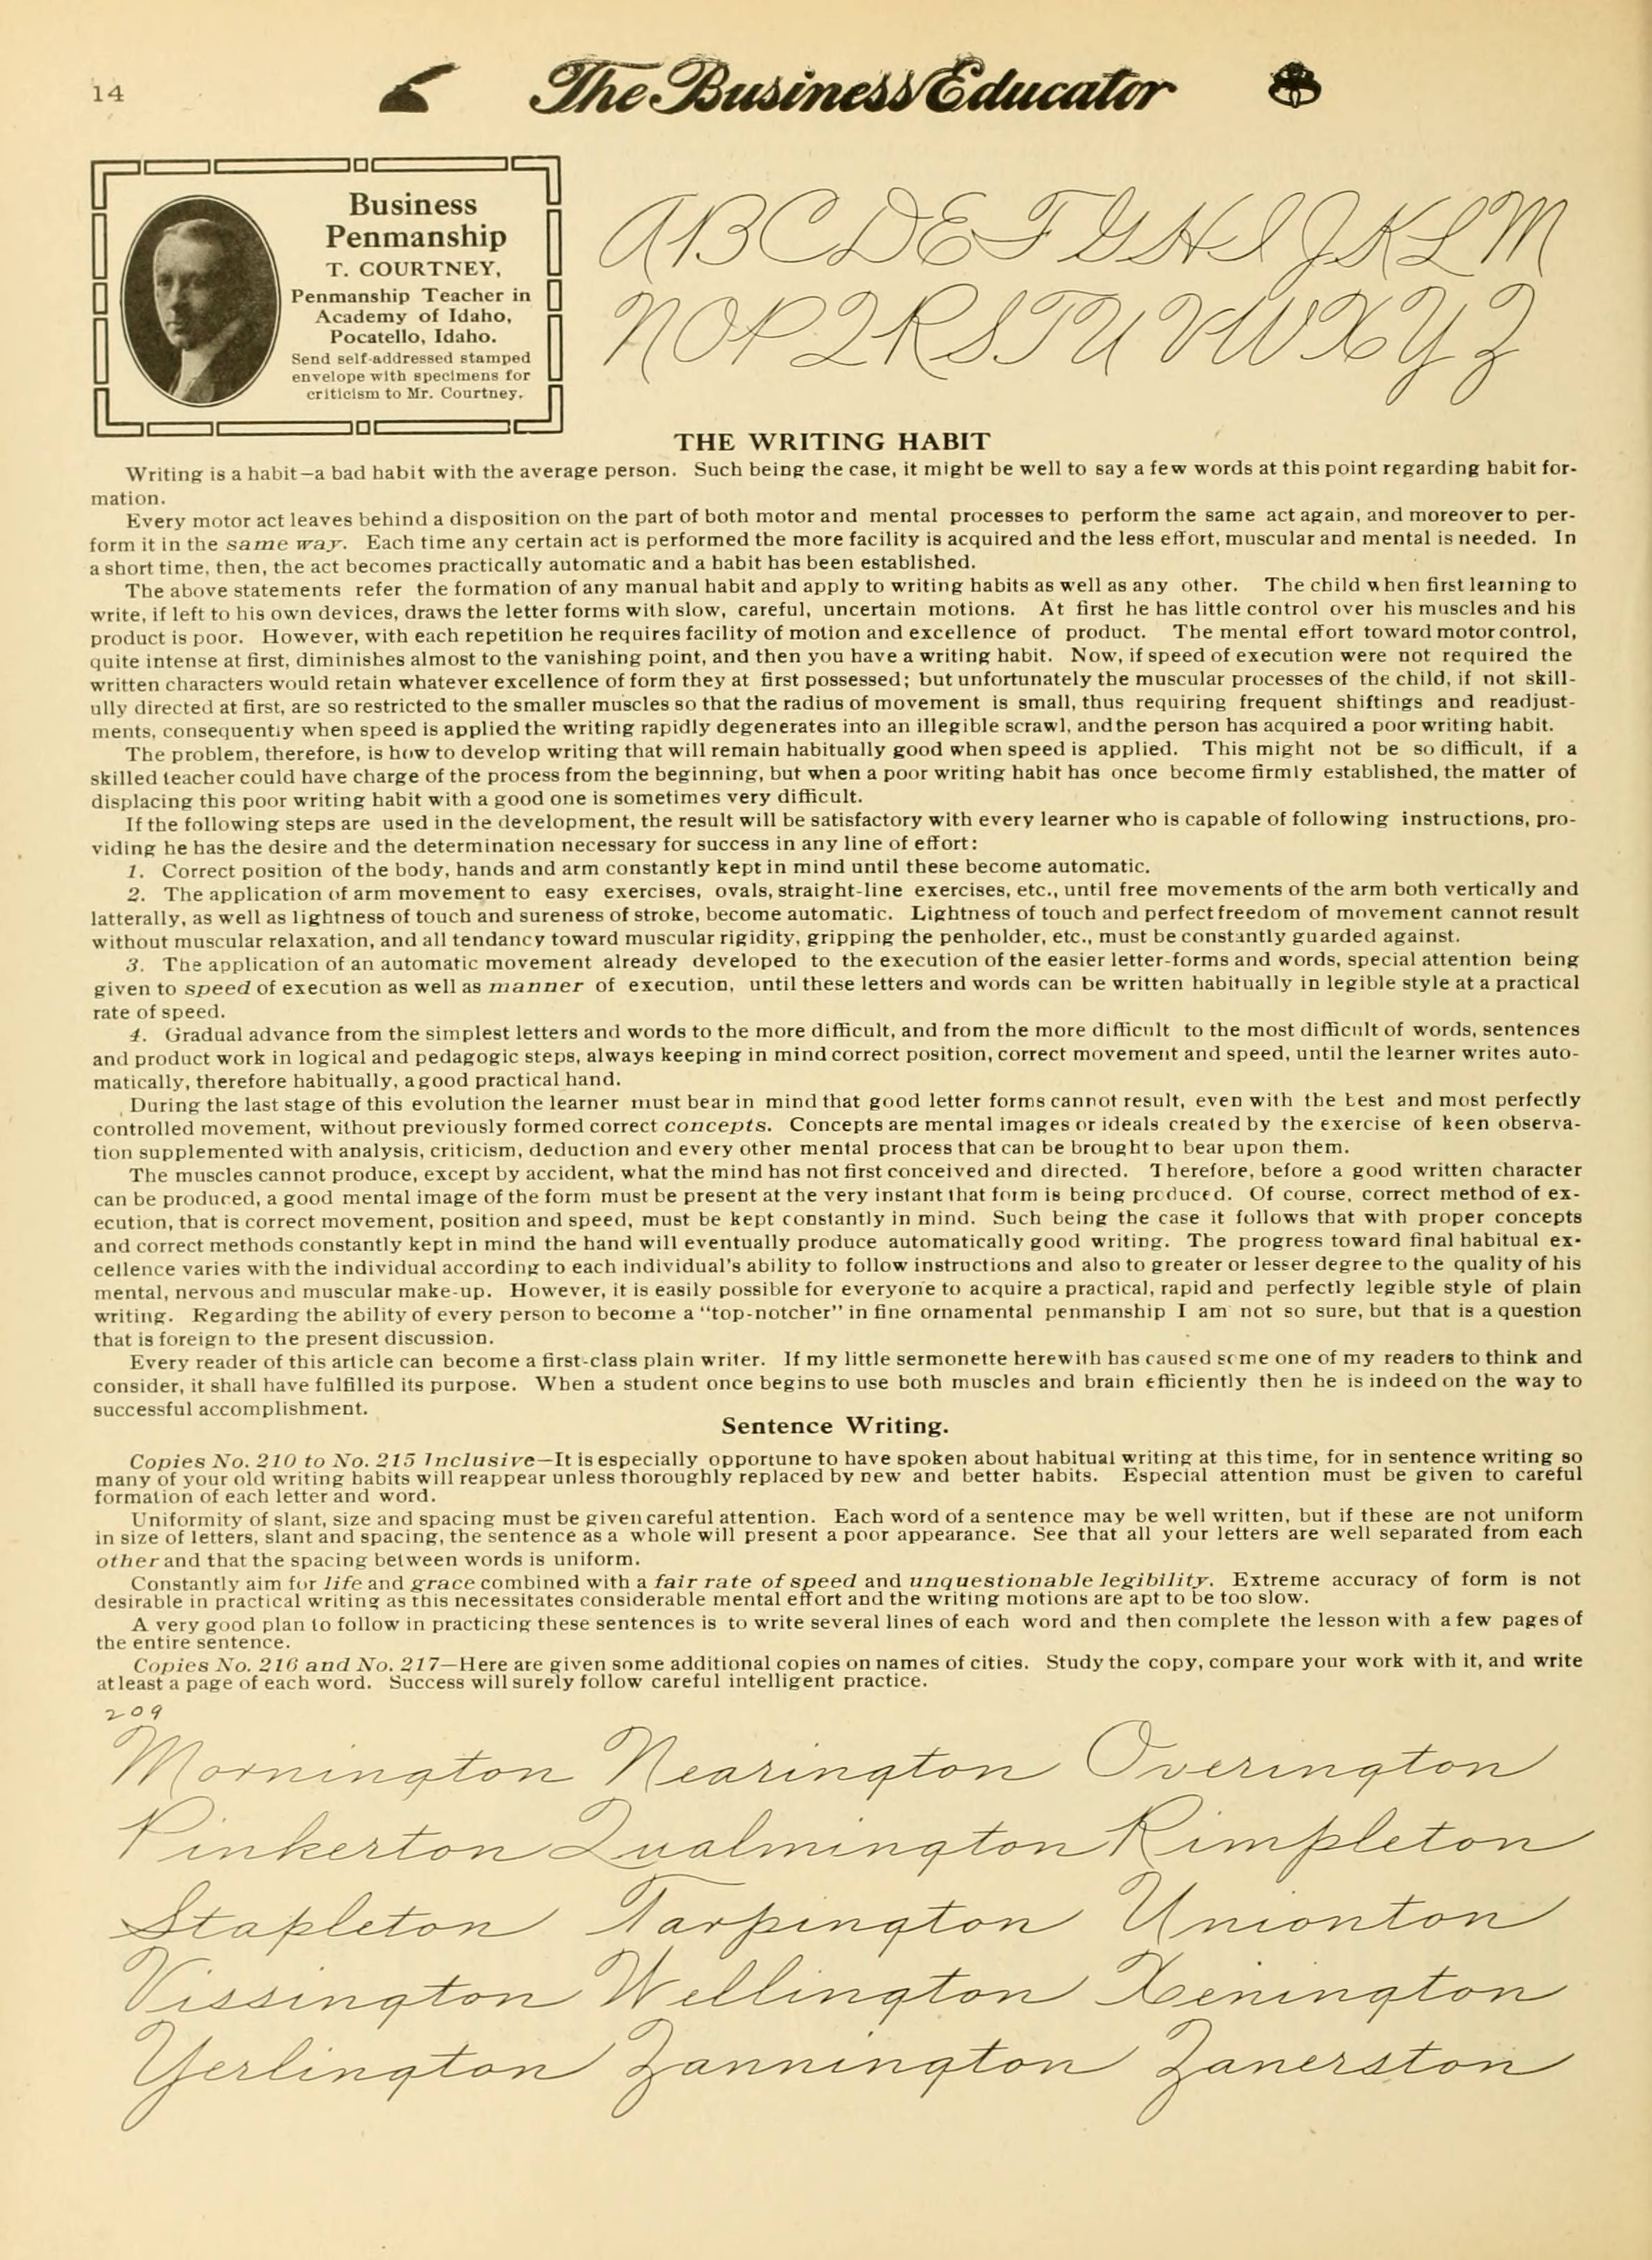 14
The Business Educator
Business
Penmanship
T. COURTNEY,
Penmanship Teacher in
Academy of Idaho,
Pocatello, Idaho.
Send self-addressed stamped
envelope with specimens for
criticism to Mr. Courtney.
A B C D E F G H I J K L M
N O P Q R S T U V W X Y Z
THE WRITING HABIT
Writing is a habit—a bad habit with the average person. Such being the case, it might be well to say a few words at this point regarding habit for-
mation.
Every motor act leaves behind a disposition on the part of both motor and mental processes to perform the same act again, and moreover to per-
form it in the same way. Each time any certain act is performed the more facility is acquired and the less effort, muscular and mental is needed. In
a short time, then, the act becomes practically automatic and a habit has been established.
The above statements refer the formation of any manual habit and apply to writing habits as well as any other. The child when first learning to
write, if left to his own devices, draws the letter forms with slow, careful, uncertain motions. At first he has little control over his muscles and his
product is poor. However, with each repetition he requires facility of motion and excellence of product. The mental effort toward motor control,
quite intense at first, diminishes almost to the vanishing point, and then you have a writing habit. Now, if speed of execution were not required the
written characters would retain whatever excellence of form they at first possessed; but unfortunately the muscular processes of the child, if not skill-
ully directed at first, are so restricted to the smaller muscles so that the radius of movement is small, thus requiring frequent shiftings and readjust-
ments, consequently when speed is applied the writing rapidly degenerates into an illegible scrawl, and the person has acquired a poor writing habit.
The problem, therefore, is how to develop writing that will remain habitually good when speed is applied. This might not be so difficult, if a
skilled teacher could have charge of the process from the beginning, but when a poor writing habit has once become firmly established, the matter of
displacing this poor writing habit with a good one is sometimes very difficult.
If the following steps are used in the development, the result will be satisfactory with every learner who is capable of following instructions, pro-
viding he has the desire and the determination necessary for success in any line of effort:
1. Correct position of the body, hands and arm constantly kept in mind until these become automatic.
2. The application of arm movement to easy exercises, ovals, straight-line exercises, etc., until free movements of the arm both vertically and
latterally, as well as lightness of touch and sureness of stroke, become automatic. Lightness of touch and perfect freedom of movement cannot result
without muscular relaxation, and all tendancy toward muscular rigidity, gripping the penholder, etc., must be constantly guarded against.
3. The application of an automatic movement already developed to the execution of the easier letter-forms and words, special attention being
given to speed of execution as well as manner of execution, until these letters and words can be written habitually in legible style at a practical
rate of speed.
4. Gradual advance from the simplest letters and words to the more difficult, and from the more difficult to the most difficult of words, sentences
and product work in logical and pedagogic steps, always keeping in mind correct position, correct movement and speed, until the learner writes auto-
matically, therefore habitually, a good practical hand.
During the last stage of this evolution the learner must bear in mind that good letter forms cannot result, even with the best and most perfectly
controlled movement, without previously formed correct concepts. Concepts are mental images or ideals created by the exercise of keen observa-
tion supplemented with analysis, criticism, deduction and every other mental process that can be brought to bear upon them.
The muscles cannot produce, except by accident, what the mind has not first conceived and directed. Therefore, before a good written character
can be produced, a good mental image of the form must be present at the very instant that form is being produced. Of course, correct method of ex-
ecution, that is correct movement, position and speed, must be kept constantly in mind. Such being the case it follows that with proper concepts
and correct methods constantly kept in mind the hand will eventually produce automatically good writing. The progress toward final habitual ex-
cellence varies with the individual according to each individual's ability to follow instructions and also to greater or lesser degree to the quality of his
mental, nervous and muscular make-up. However, it is easily possible for everyone to acquire a practical, rapid and perfectly legible style of plain
writing. Regarding the ability of every person to become a "top-notcher" in fine ornamental penmanship I am not so sure, but that is a question
that is foreign to the present discussion.
Every reader of this article can become a first-class plain writer. If my little sermonette herewith has caused some one of my readers to think and
consider, it shall have fulfilled its purpose. When a student once begins to use both muscles and brain efficiently then he is indeed on the way to
successful accomplishment.
Sentence Writing.
Copies No. 210 to No. 215 Inclusive—It is especially opportune to have spoken about habitual writing at this time, for in sentence writing so
many of your old writing habits will reappear unless thoroughly replaced by new and better habits. Especial attention must be given to careful
formation of each letter and word.
Uniformity of slant, size and spacing must be given careful attention. Each word of a sentence may be well written, but if these are not uniform
in size of letters, slant and spacing, the sentence as a whole will present a poor appearance. See that all your letters are well separated from each
other and that the spacing between words is uniform.
Constantly aim for life and grace combined with a fair rate of speed and unquestionable legibility. Extreme accuracy of form is not
desirable in practical writing as this necessitates considerable mental effort and the writing motions are apt to be too slow.
A very good plan to follow in practicing these sentences is to write several lines of each word and then complete the lesson with a few pages of
the entire sentence.
Copies No. 216 and No. 217—Here are given some additional copies on names of cities. Study the copy, compare your work with it, and write
at least a page of each word. Success will surely follow careful intelligent practice.
209
Mornington Nearington Overington
Pinkerton Qualmington Rimpleton
Stapleton Tarpington Unionton
Vissington Wellington Xenington
Yerlington Zannington Zanerston